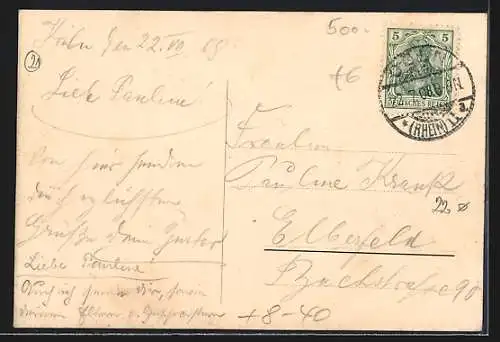 Köln den 22. VII 05
Liebe Pauline!
Von hier senden
Dir herzlichsten
Grüße Dein Gustav
Liebe Pauline!
Auch ich sende Dir, sowie
deinen Eltern u. Geschwistern
21
500.-
+6
5 5
DEUTSCHES REICH
(RHEIN)
Fräulein
Pauline Krauß
22
Elberfeld
Bachstrasse 90
+8-40